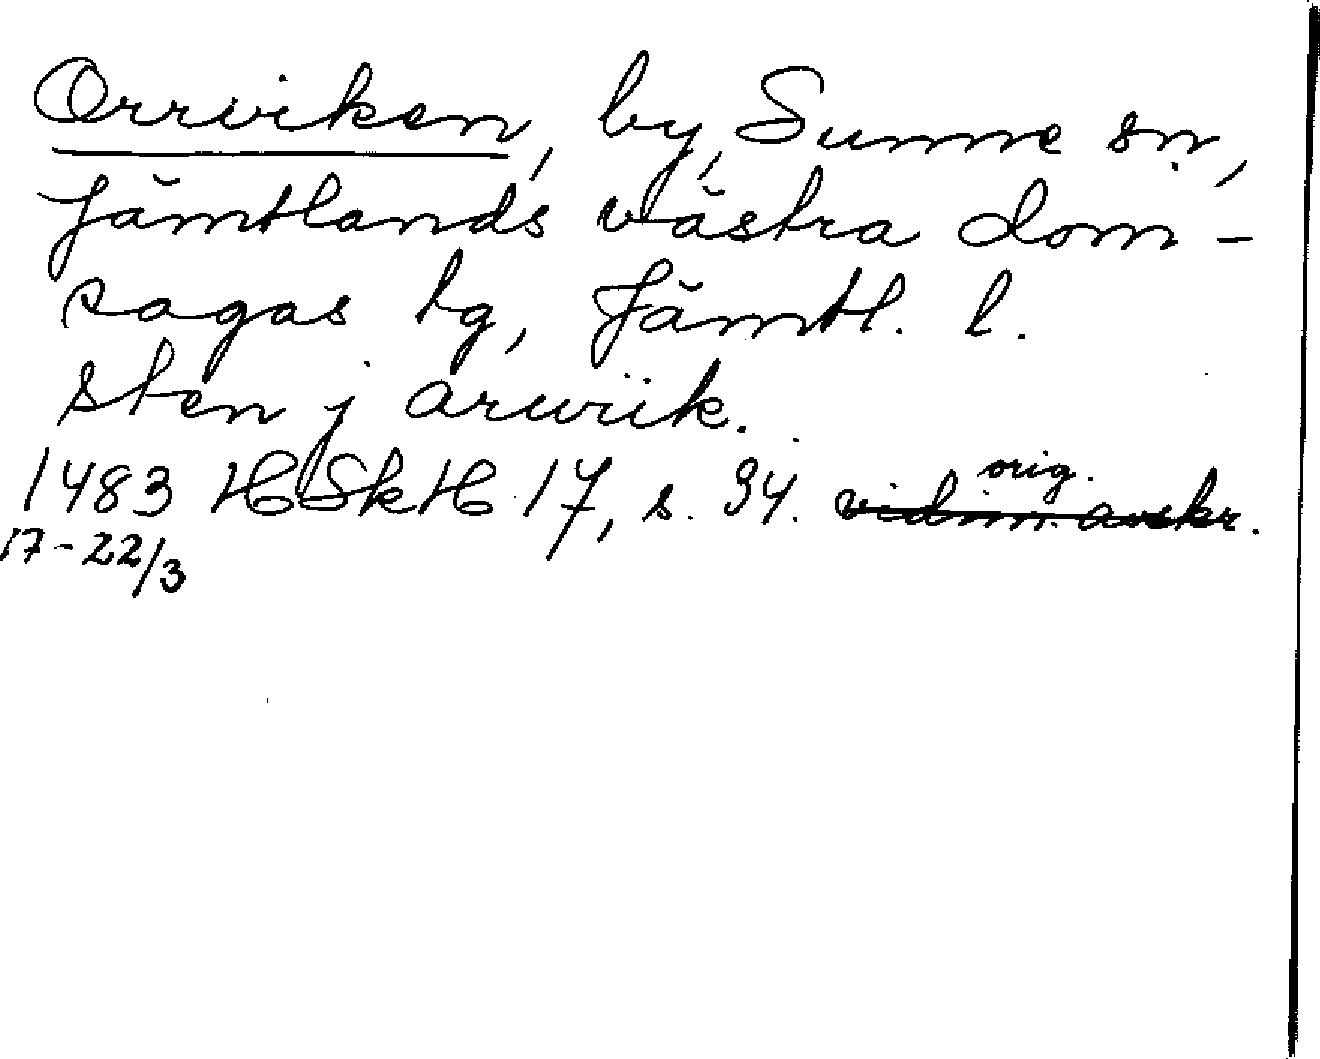 Orrviken, by, Sunne sn,
Jämtlands västra dom-
sagas tg, Jämtl. l.
sten j arwiik.
orig.
1483 HSkH 17, s. 94. vidim. avskr.
17-22/3